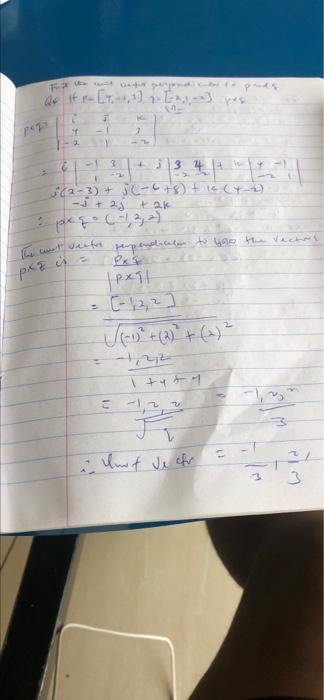 Find the unit vector perpendicular to p and q
Q6 If p = [4, -1, 3] q = [-2, 1, -2] p×q
p×q = | i j k |
| 4 -1 3 |
| -2 1 -2 |
= i | -1 3 | + j | 3 4 | + k | 4 -1 |
| 1 -2 | | -2 -2 | | -2 1 |
i(2-3) + j(-6+8) + k(4-2)
-i + 2j + 2k
∴ p×q = (-1, 2, 2)
The unit vector perpendicular to the vectors
p×q is = p×q
|p×q|
= [-1, 2, 2]
√(-1)² + (2)² + (2)²
= -1, 2, 2
1 + 4 + 4
= -1, 2, 2 = -1, 2, 2
√ 3
∴ Unit Vector = -1 , 2,
3 3